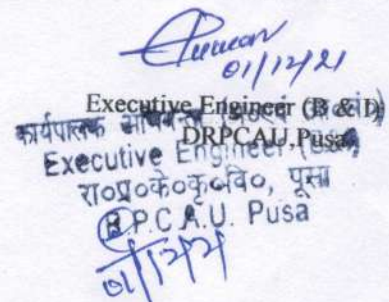 01/12/21
Executive Engineer (B & D)
DRPCAU, Pusa
कार्यपालक
Executive Engineer
रा०प्र०के०कृ०वि०, पूसा
R.P.C.A.U. Pusa
01/12/21